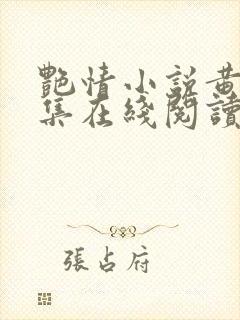 艷情小說黄
集在綫閱讀
張占府